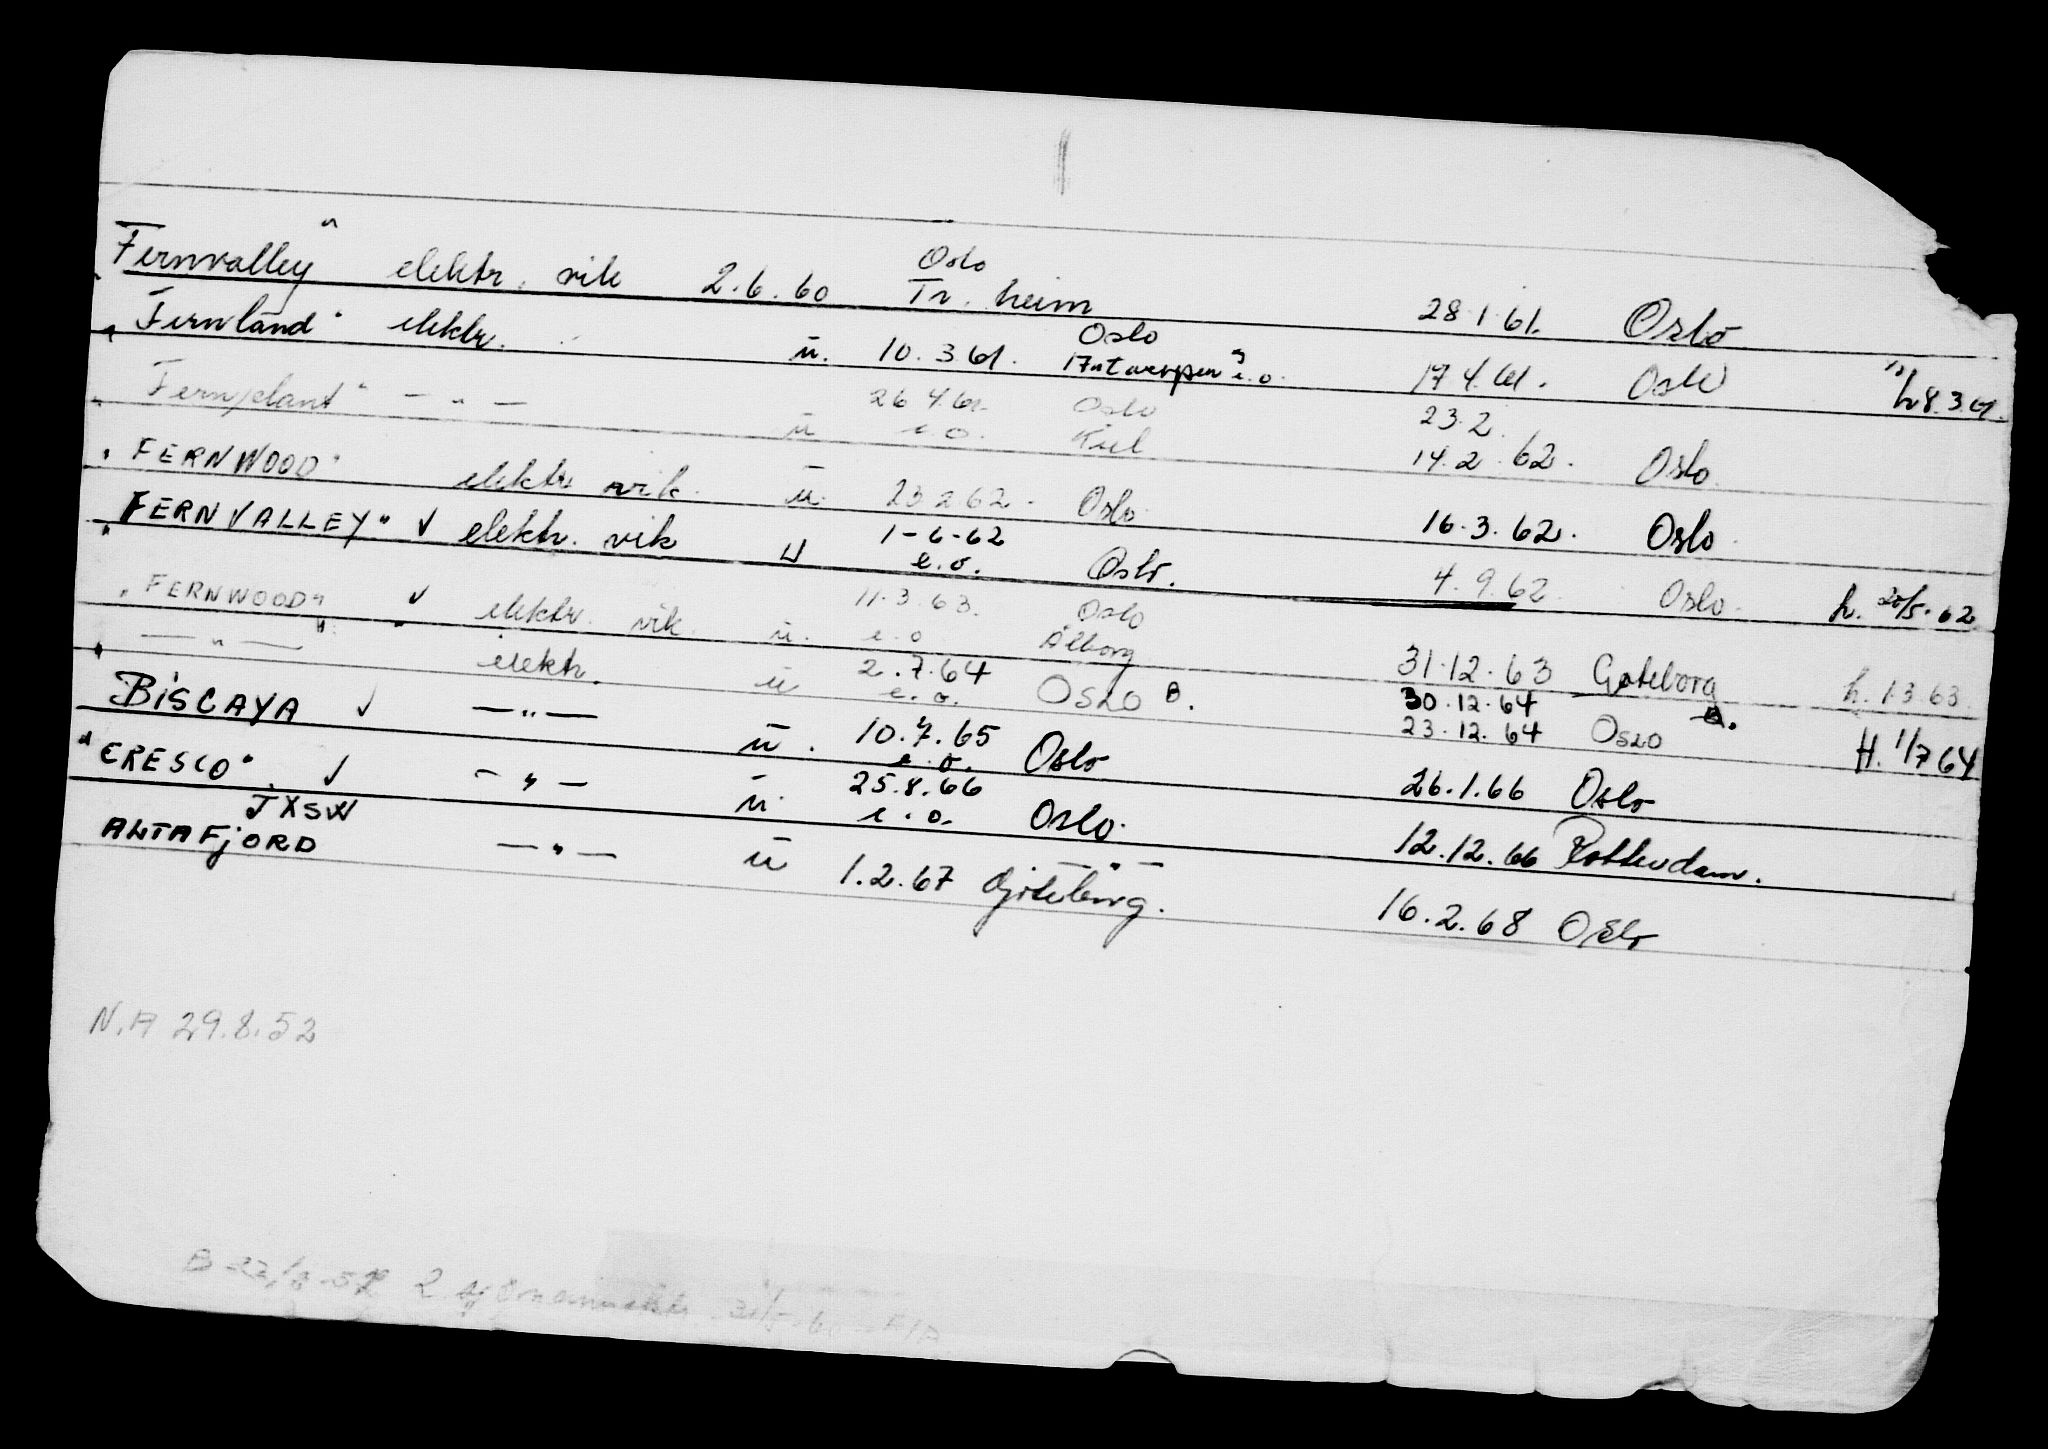 Fernvalley" elektr. vik 2.6.60 Oslo Tr. heim 28.1.61. Oslo
"Fernland" elektr. u. 10.3.61. Oslo Antwerpen e.o. 17.4.61. Oslo h 8.3.61.
"Fernplant" — " — u 26.4.61. e.o. Oslo Kiel 23.2. 14.2.62. Oslo
"FERNWOOD" elektr vik. u. 23.2.62. Oslo 16.3.62. Oslo
"FERNVALLEY" ✓ elektr. vik u 1-6-62 e.o. Oslo. 4.9.62. Oslo. h. 28/5.62
"FERNWOOD" ✓ elektr. vik. u. 11.3.63. e.o Oslo Ålborg 31.12.63 Gøteborg h. 1.3.63.
— " — elektr. u 2.7.64 e.o. OSLO B. 30.12.64 23.12.64 OSLO H. 1/7 64
"BISCAYA ✓ — " — u. 10.7.65 e.o. Oslo 26.1.66 Oslo
"CRESCO" ✓ — " — u. 25.8.66 e.o. Oslo. 12.12.66 Rotterdam.
JXSW
ALTAFJORD — " — u 1.2.67 — " — Gøteborg. 16.2.68 Oslo
N.A 29.8.52